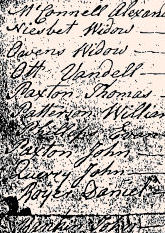 McConnell Alexan
Nesbet Widow
Owens Widow
Ott Vandell
Paxton Thomas
Patterson William
Paxton John
Query John
Daniel
John